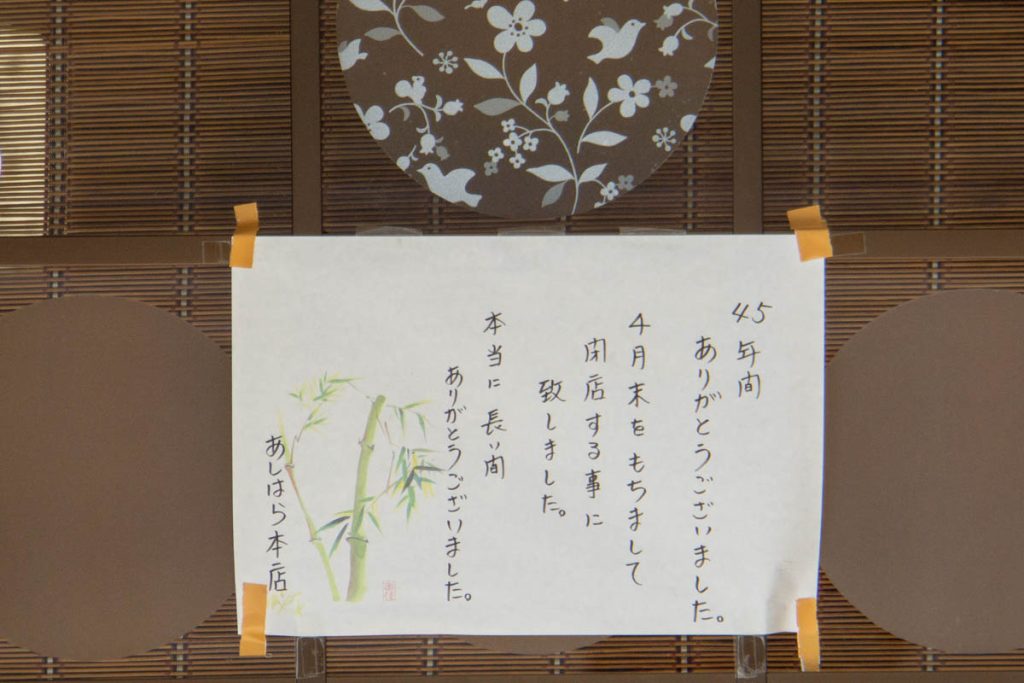 45年間
ありがとうございました。
4月末をもちまして
閉店する事に
致しました。
本当に長い間
ありがとうございました。
あしはら本店